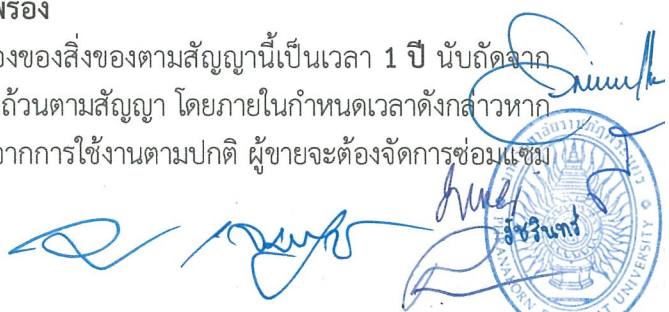 พร่อง
องของสิ่งของตามสัญญานี้เป็นเวลา 1 ปี นับถัดจาก
ถ้วนตามสัญญา โดยภายในกำหนดเวลาดังกล่าวหาก
จากการใช้งานตามปกติ ผู้ขายจะต้องจัดการซ่อมแซม
วัชรินทร์
UNIVERSITY